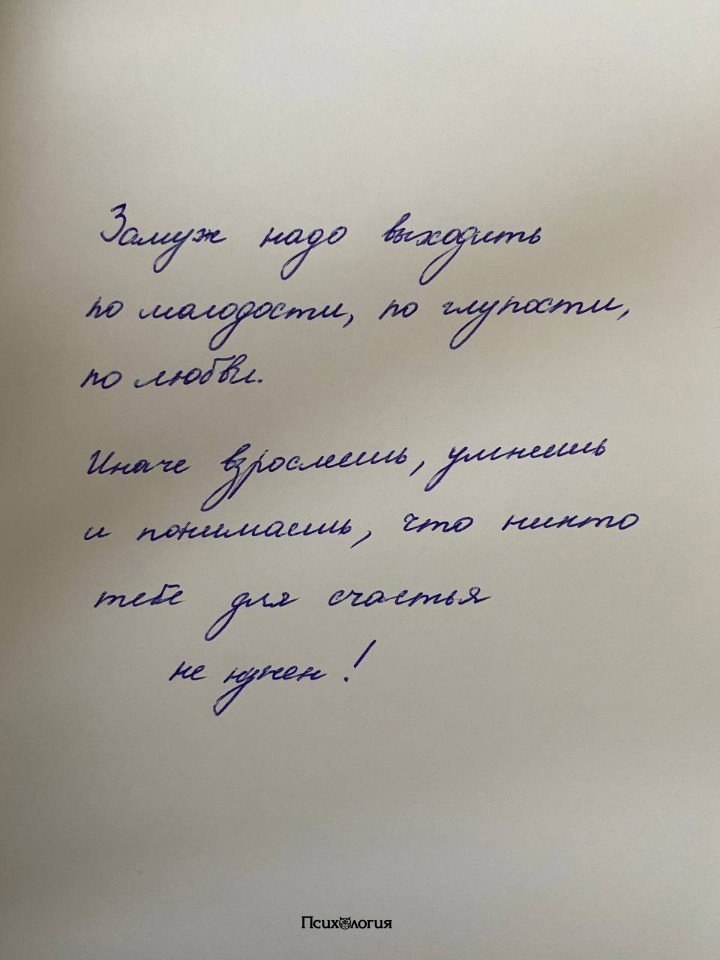 Замуж надо выходить
по молодости, по глупости,
по любви.
Иначе взрослеешь, умнеешь
и понимаешь, что никто
тебе для счастья
не нужен!
Психология